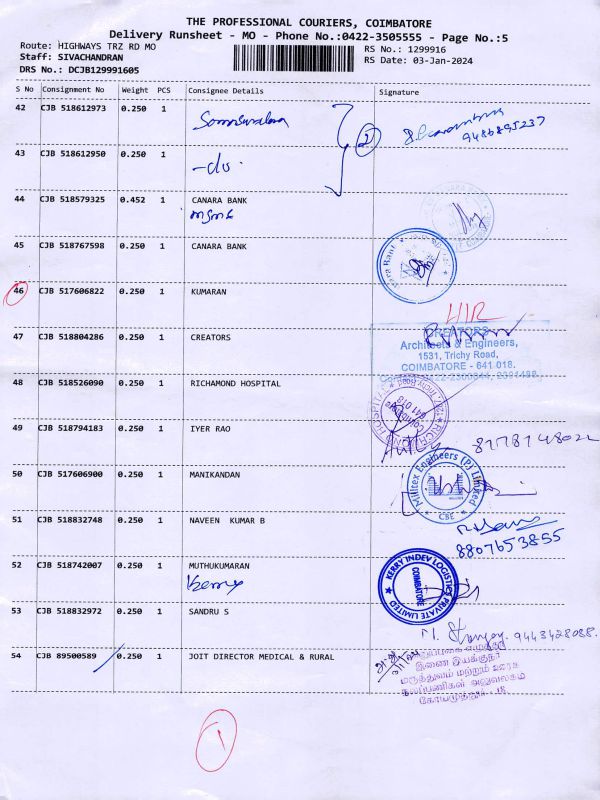 THE PROFESSIONAL COURIERS, COIMBATORE
Delivery Runsheet - MO - Phone No.:0422-3505555 - Page No.:5
Route: HIGHWAYS TRZ RD MO
RS No.: 1299916
Staff: SIVACHANDRAN
RS Date: 03-Jan-2024
DRS No.: DCJB129991605
S No Consignment No Weight PCS Consignee Details Signature
42 CJB 518612973 0.250 1
2
9486895237
43 CJB 518612950 0.250 1
-do-
44 CJB 518579325 0.452 1 CANARA BANK
msme
45 CJB 518767598 0.250 1 CANARA BANK
46 CJB 517606822 0.250 1 KUMARAN
47 CJB 518804286 0.250 1 CREATORS
CREATORS
Architects & Engineers,
1531, Trichy Road,
COIMBATORE - 641 018.
48 CJB 518526090 0.250 1 RICHAMOND HOSPITAL
49 CJB 518794183 0.250 1 IYER RAO
50 CJB 517606900 0.250 1 MANIKANDAN
Militex Engineers (P) Limited
CBE
51 CJB 518832748 0.250 1 NAVEEN KUMAR B
8807653855
52 CJB 518742007 0.250 1 MUTHUKUMARAN
Kerry
KERRY INDEV LOGISTICS PRIVATE LIMITED
COIMBATORE
53 CJB 518832972 0.250 1 SANDRU S
9443428088.
54 CJB 89500589 0.250 1 JOIT DIRECTOR MEDICAL & RURAL
இணை இயக்குநர்
மருத்துவம் மற்றும் ஊரக
நலப்பணிகள் அலுவலகம்
1